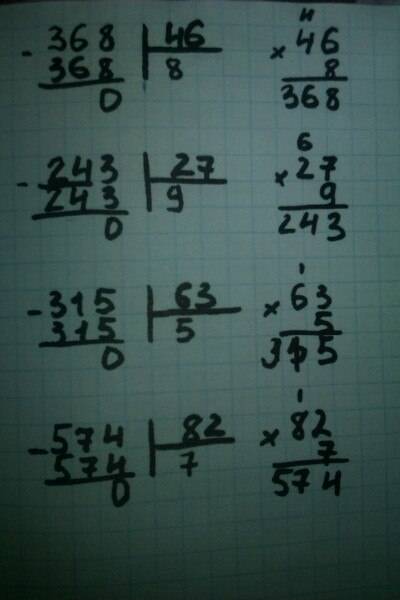 4
- 368 | 46 × 46
368 8 8
0 368
6
- 243 | 27 × 27
243 9 9
0 243
1
- 315 | 63 × 63
315 5 5
0 315
1
- 574 | 82 × 82
574 7 7
0 574